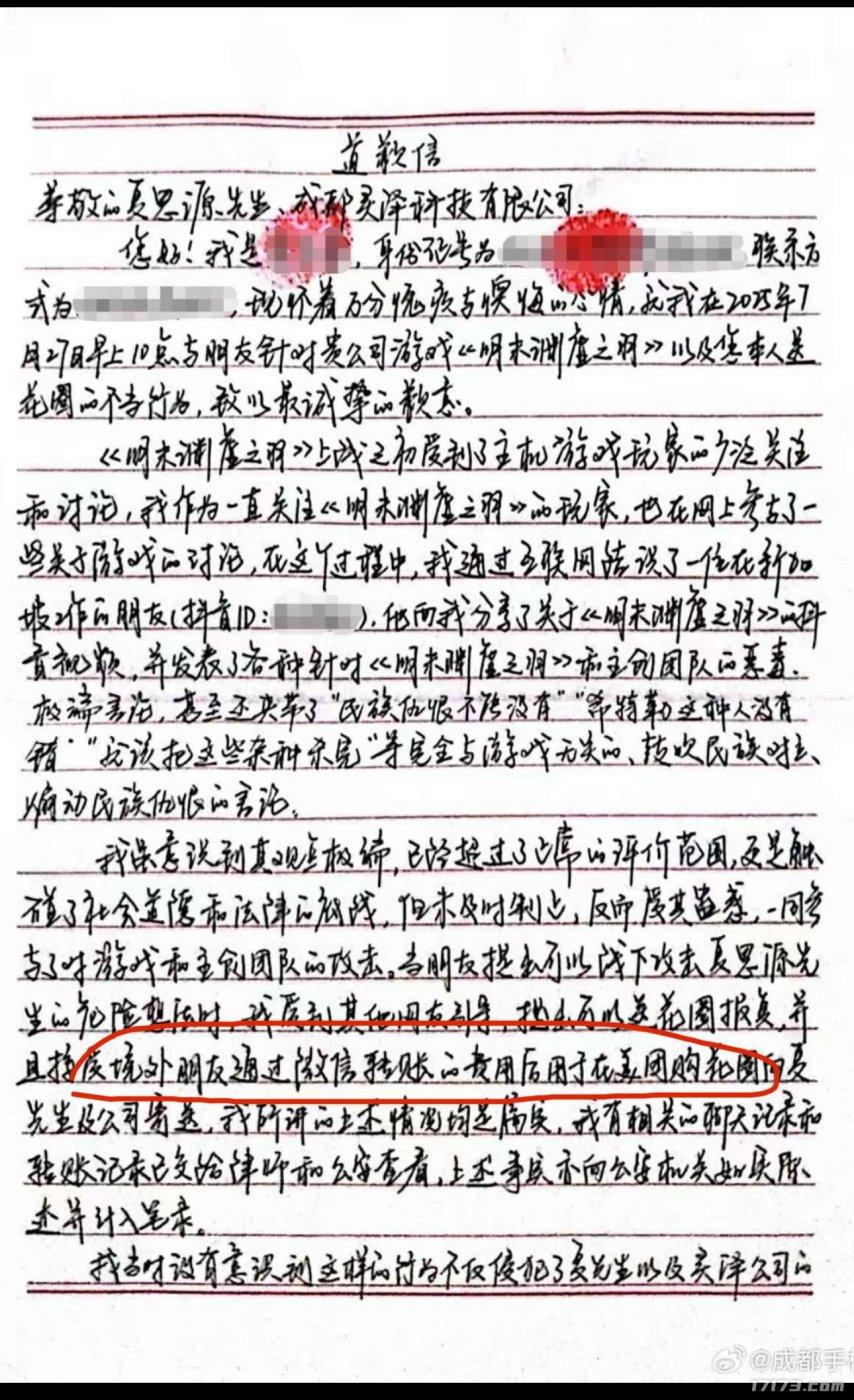 道歉信
尊敬的夏思源先生、成都灵泽科技有限公司:
您好!我是 ,身份证号为 联系方
式为 ,现怀着万分愧疚与懊悔的心情,就我在2025年7
月27日早上10点与朋友针对贵公司游戏《明末渊虚之羽》以及您本人送
花圈的不当行为,致以最诚挚的歉意。
《明末渊虚之羽》上线之初受到了主机游戏玩家的广泛关注
和讨论,我作为一直关注《明末渊虚之羽》的玩家,也在网上参与了一
些关于游戏的讨论,在这个过程中,我通过互联网结识了一位在新加
坡工作的朋友(抖音ID: ),他向我分享了关于《明末渊虚之羽》的抖
音视频,并发表了各种针对《明末渊虚之羽》和主创团队的恶毒、
极端言论,甚至还夹带了“民族仇恨不能没有”“希特勒这种人没有
错”“就该把这些杂种杀完”等完全与游戏无关的、鼓吹民族对立、
煽动民族仇恨的言论。
我虽意识到其观点极端,已经超过了正常的评价范围,更是触
碰了社会道德和法律的底线,但未及时制止,反而受其蛊惑,一同参
与了对游戏和主创团队的攻击。当朋友提出可以线下攻击夏思源先
生的危险想法时,我受到其他网友引导,提出可以送花圈报复,并
且接受境外朋友通过微信转账的费用后用于在美团购花圈向夏
先生及公司寄送,我所讲的上述情况均是属实,我有相关的聊天记录和
转账记录已交给律师和公安查看,上述事实亦向公安机关如实陈
述并计入笔录。
我当时没有意识到这样的行为不仅侵犯了夏先生以及灵泽公司的
@成都手机
17173.com